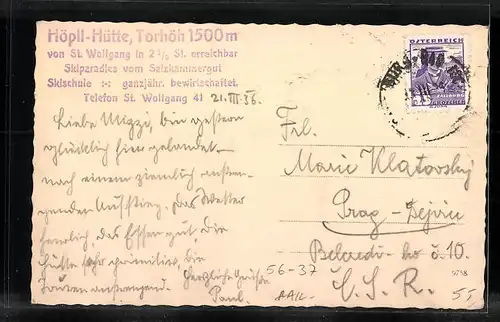 Höpll-Hütte, Torhöh 1500 m
von St. Wolfgang in 2 1/2 St. erreichbar
Skiparadies vom Salzkammergut
Skischule ganzjähr. bewirtschaftet.
Telefon St. Wolfgang 41
21.III.36.
Liebe Mizzi, bin gestern
glücklich hier gelandet
nach einem ziemlich anstren-
genden Aufstieg. Das Wetter
herrlich, das Essen gut die
Hütte sehr primitiv, die
Touren anstrengend.
Herzliche Grüße
Paul.
ÖSTERREICH
Frl.
Marie Klatovsky
Prag - Dejvice
Belcredi-ho č 10.
Č. S. R.
56-37